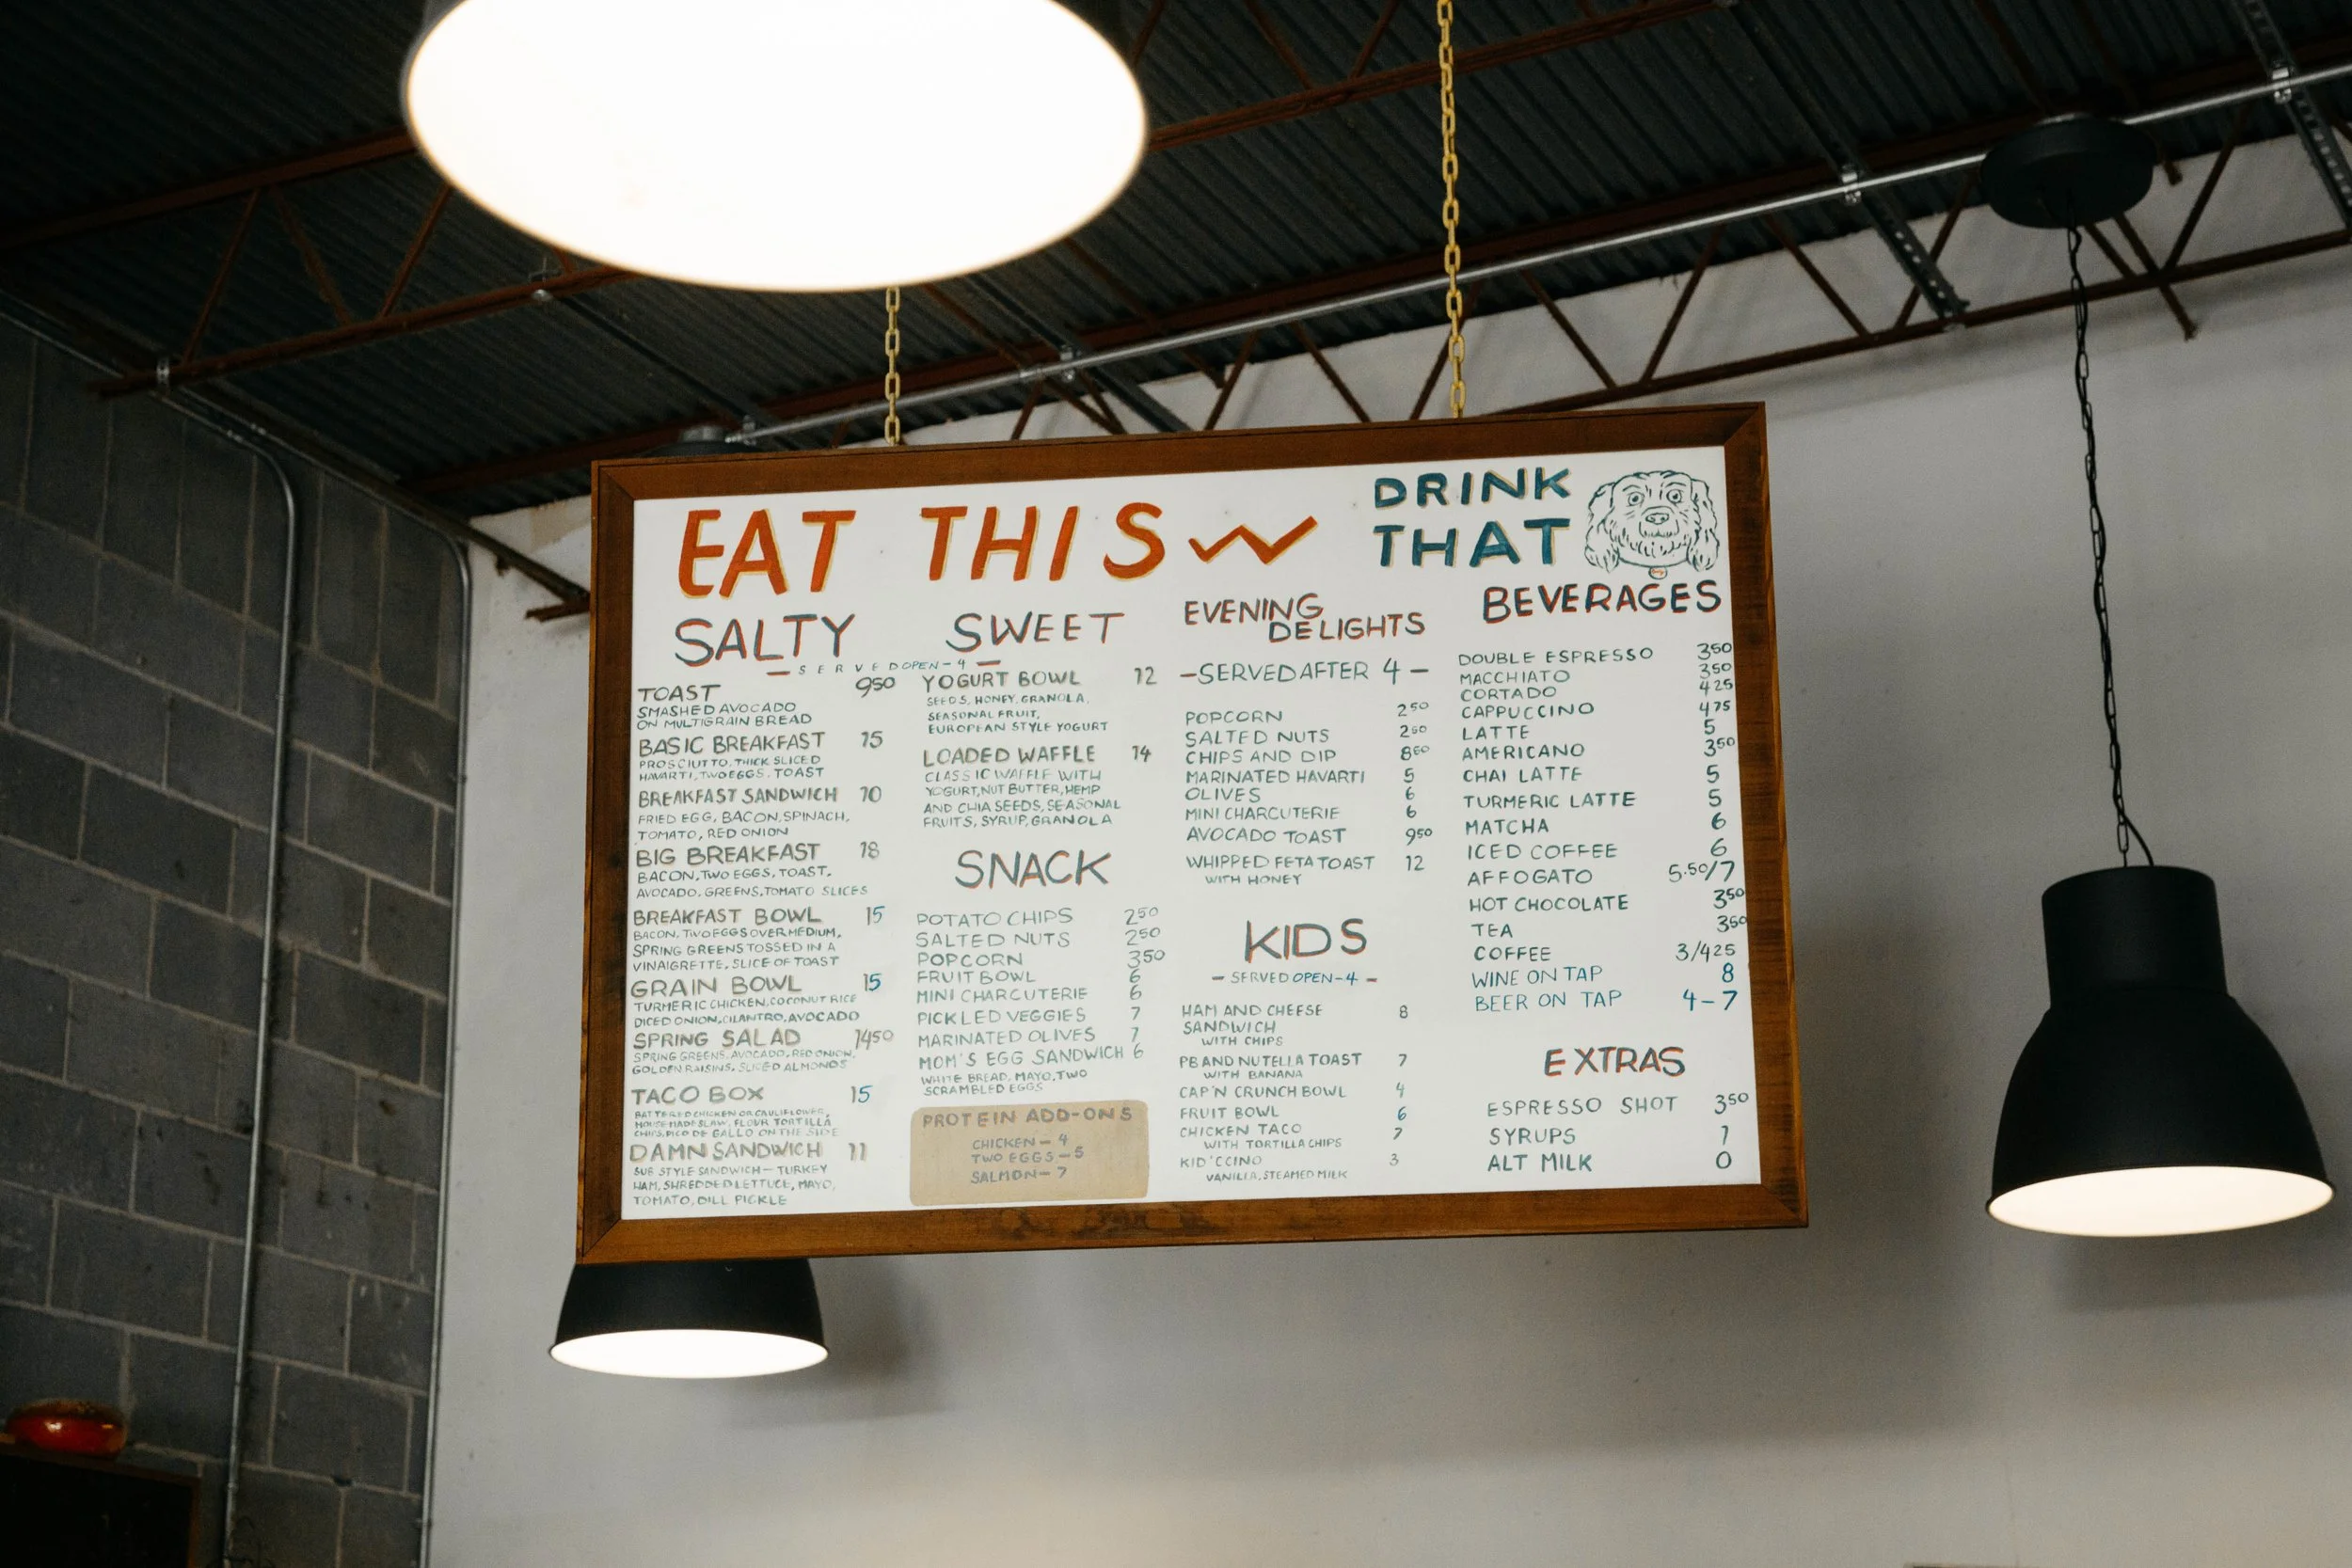 EAT THIS
DRINK
THAT
SALTY
SWEET
— SERVED OPEN-4 —
TOAST 950
SMASHED AVOCADO
ON MULTIGRAIN BREAD
BASIC BREAKFAST 15
PROSCIUTTO, THICK SLICED
HAVARTI, TWO EGGS, TOAST
BREAKFAST SANDWICH 10
FRIED EGG, BACON, SPINACH,
TOMATO, RED ONION
BIG BREAKFAST 18
BACON, TWO EGGS, TOAST,
AVOCADO, GREENS, TOMATO SLICES
BREAKFAST BOWL 15
BACON, TWO EGGS OVER MEDIUM,
SPRING GREENS TOSSED IN A
VINAIGRETTE, SLICE OF TOAST
GRAIN BOWL 15
TURMERIC CHICKEN, COCONUT RICE
DICED ONION, CILANTRO, AVOCADO
SPRING SALAD 1450
SPRING GREENS, AVOCADO, RED ONION,
GOLDEN RAISINS, SLICED ALMONDS
TACO BOX 15
BATTERED CHICKEN OR CAULIFLOWER,
HOUSE MADE SLAW, FLOUR TORTILLA
CHIPS, PICO DE GALLO ON THE SIDE
DAMN SANDWICH 11
SUB STYLE SANDWICH — TURKEY
HAM, SHREDDED LETTUCE, MAYO,
TOMATO, DILL PICKLE
YOGURT BOWL 12
SEEDS, HONEY, GRANOLA,
SEASONAL FRUIT,
EUROPEAN STYLE YOGURT
LOADED WAFFLE 14
CLASSIC WAFFLE WITH
YOGURT, NUT BUTTER, HEMP
AND CHIA SEEDS, SEASONAL
FRUITS, SYRUP, GRANOLA
SNACK
POTATO CHIPS 250
SALTED NUTS 250
POPCORN 350
FRUIT BOWL 6
MINI CHARCUTERIE 6
PICKLED VEGGIES 7
MARINATED OLIVES 7
MOM'S EGG SANDWICH 6
WHITE BREAD, MAYO, TWO
SCRAMBLED EGGS
PROTEIN ADD-ONS
CHICKEN — 4
TWO EGGS — 5
SALMON — 7
EVENING
DELIGHTS
— SERVED AFTER 4 —
POPCORN 250
SALTED NUTS 250
CHIPS AND DIP 850
MARINATED HAVARTI 5
OLIVES 6
MINI CHARCUTERIE 6
AVOCADO TOAST 950
WHIPPED FETA TOAST 12
WITH HONEY
KIDS
— SERVED OPEN-4 —
HAM AND CHEESE 8
SANDWICH
WITH CHIPS
PB AND NUTELLA TOAST 7
WITH BANANA
CAP'N CRUNCH BOWL 4
FRUIT BOWL 6
CHICKEN TACO 7
WITH TORTILLA CHIPS
KID'CCINO 3
VANILLA, STEAMED MILK
BEVERAGES
DOUBLE ESPRESSO 350
MACCHIATO 350
CORTADO 425
CAPPUCCINO 475
LATTE 5
AMERICANO 350
CHAI LATTE 5
TURMERIC LATTE 5
MATCHA 6
ICED COFFEE 6
AFFOGATO 5.50/7
HOT CHOCOLATE 350
TEA 350
COFFEE 3/425
WINE ON TAP 8
BEER ON TAP 4-7
EXTRAS
ESPRESSO SHOT 350
SYRUPS 1
ALT MILK 0